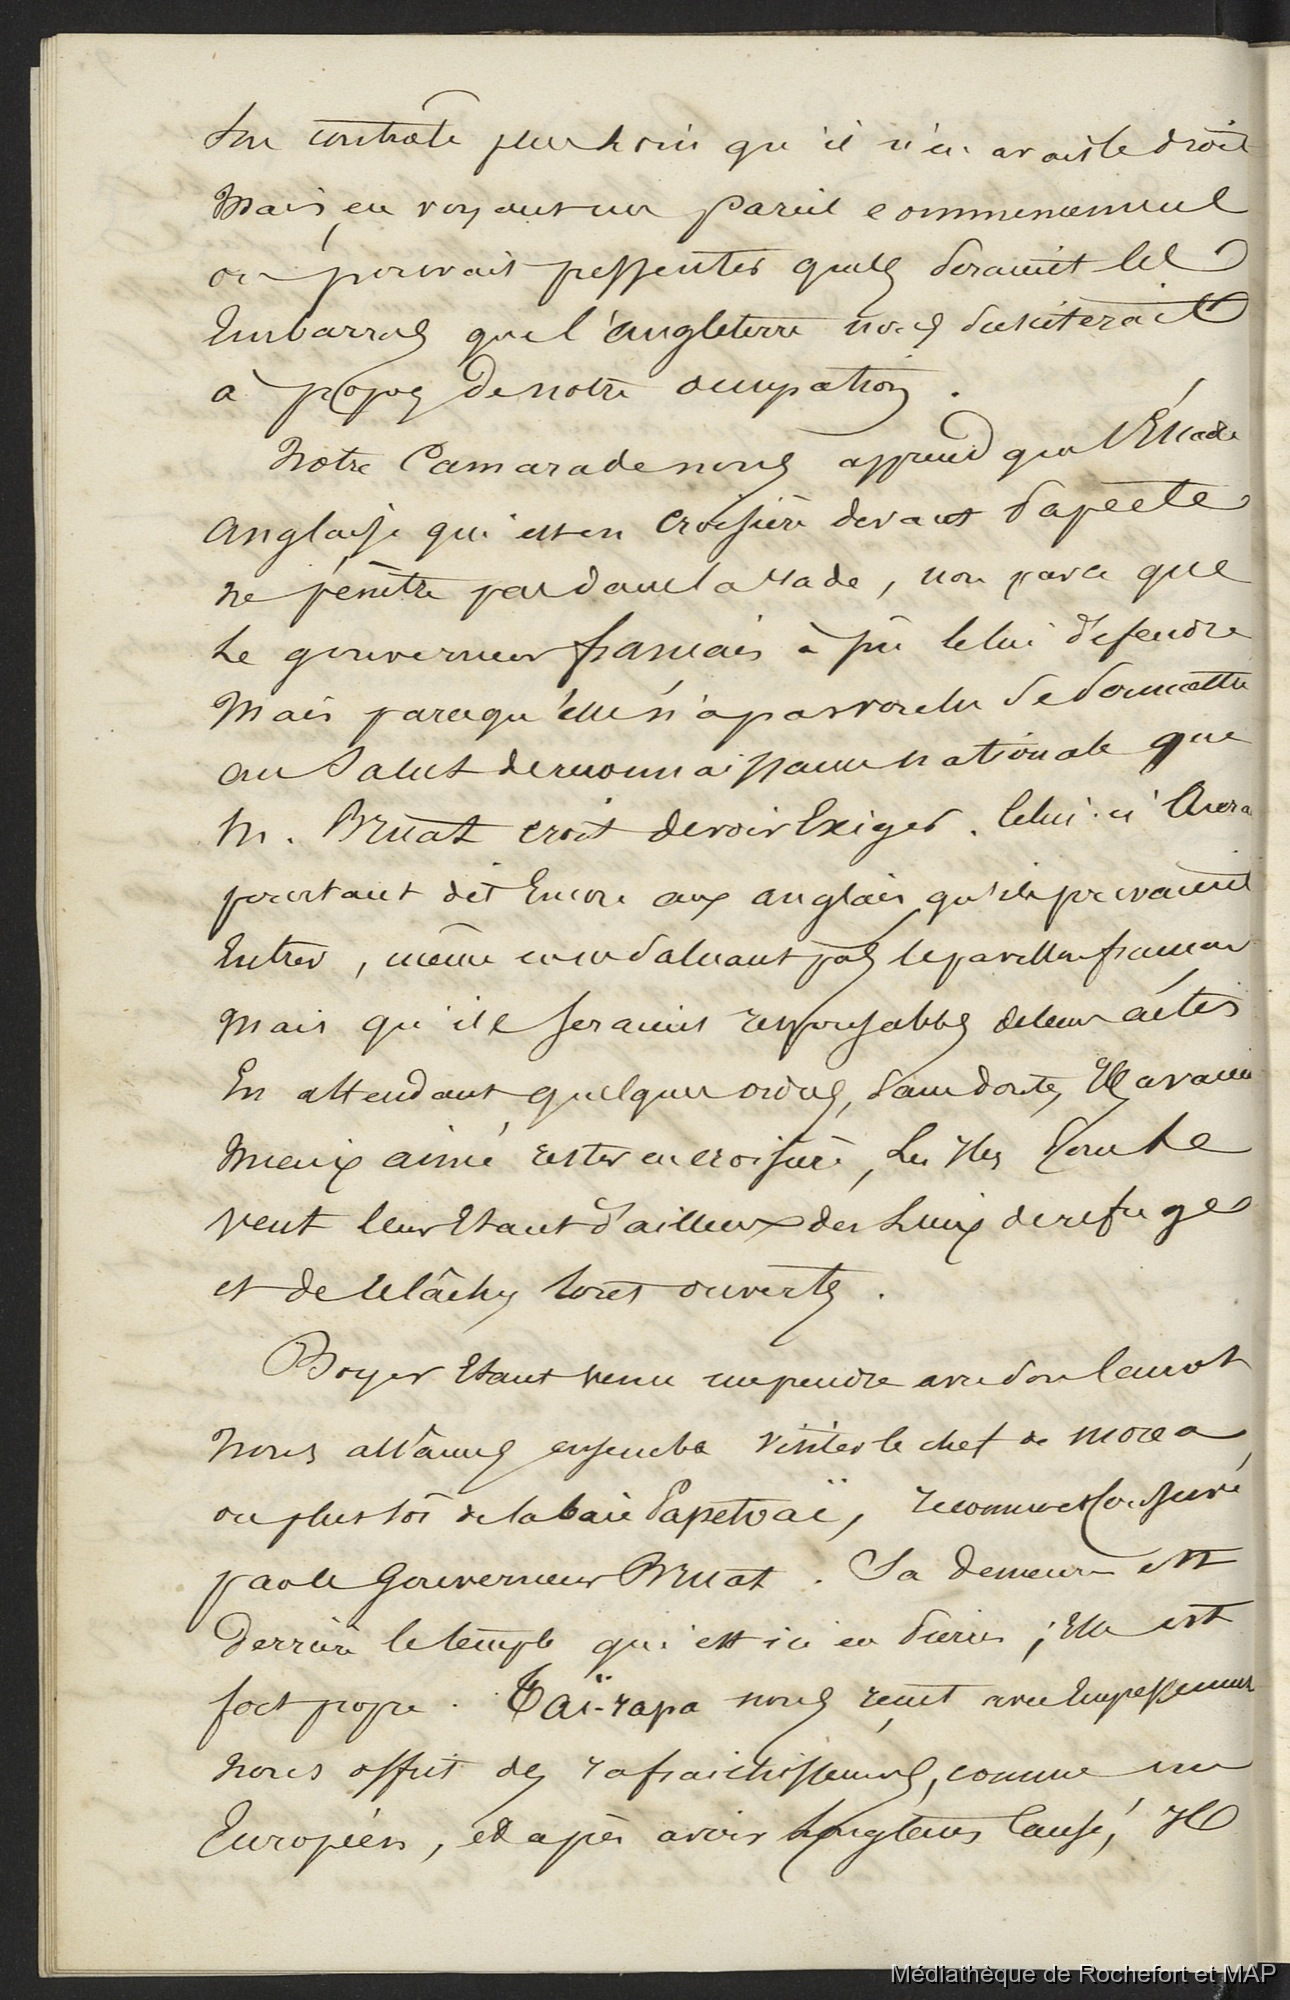 son contrôle plus loin qu'il n'en avait le droit
Mais, en voyant un pareil commencement
on pouvait pressentir quels seraient les
Embarras que l'angleterre nous susciterait
à propos de notre occupation.
Notre Camarade nous apprend que l'Escadre
anglaise qui est en croisière devant Papeete
ne pénètre pas dans la rade, non parce que
le gouverneur français à pu le lui défendre
Mais parcequ'elle n'a pas voulu se soumettre
au salut de reconnaissance nationale que
M. Bruat croit devoir Exiger. Celui-ci aura
pourtant dit Encore aux anglais qu'ils pouvaient
Entrer, même en ne saluant pas le pavillon français
Mais qu'ils seraient responsables de leurs actes
En attendant quelques ordres, sans doute, Ils avaient
Mieux aimé rester en croisière, les Iles sous le
vent leur Etant d'ailleurs des lieux de refuge
et de relâches tous ouverts.
Boyer Etant venu me prendre avec son canot
Nous allâmes ensemble visiter le chef de morea
ou plustôt de la baie Papetoaï, reconnu et
par le Gouverneur Bruat. Sa demeure est
derrière le temple qui est ici en pierres; Elle est
fort propre. Taï-rapa nous reçut avec Empressement
nous offrit des rafraichissements, comme un
Européen, et après avoir longtems causé, Il